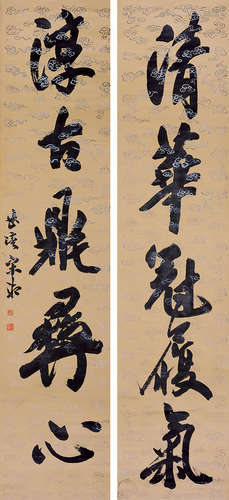 清華冠履氣
淳古鼎彝心